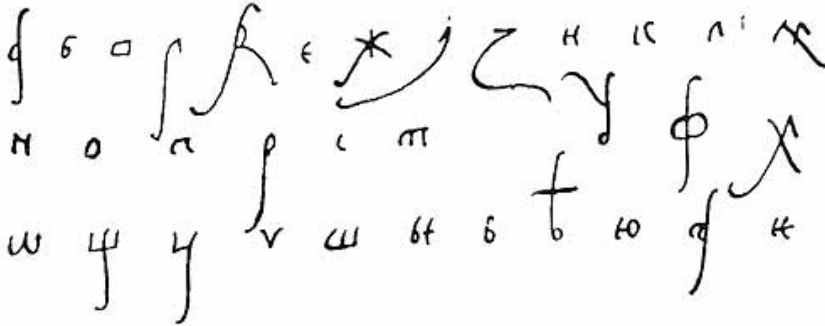 а б в г д є ж ѕ з и к л м
н о п р с т у ф х
ѡ щ ц ч ш ы ь ѣ ю ѧ ѥ